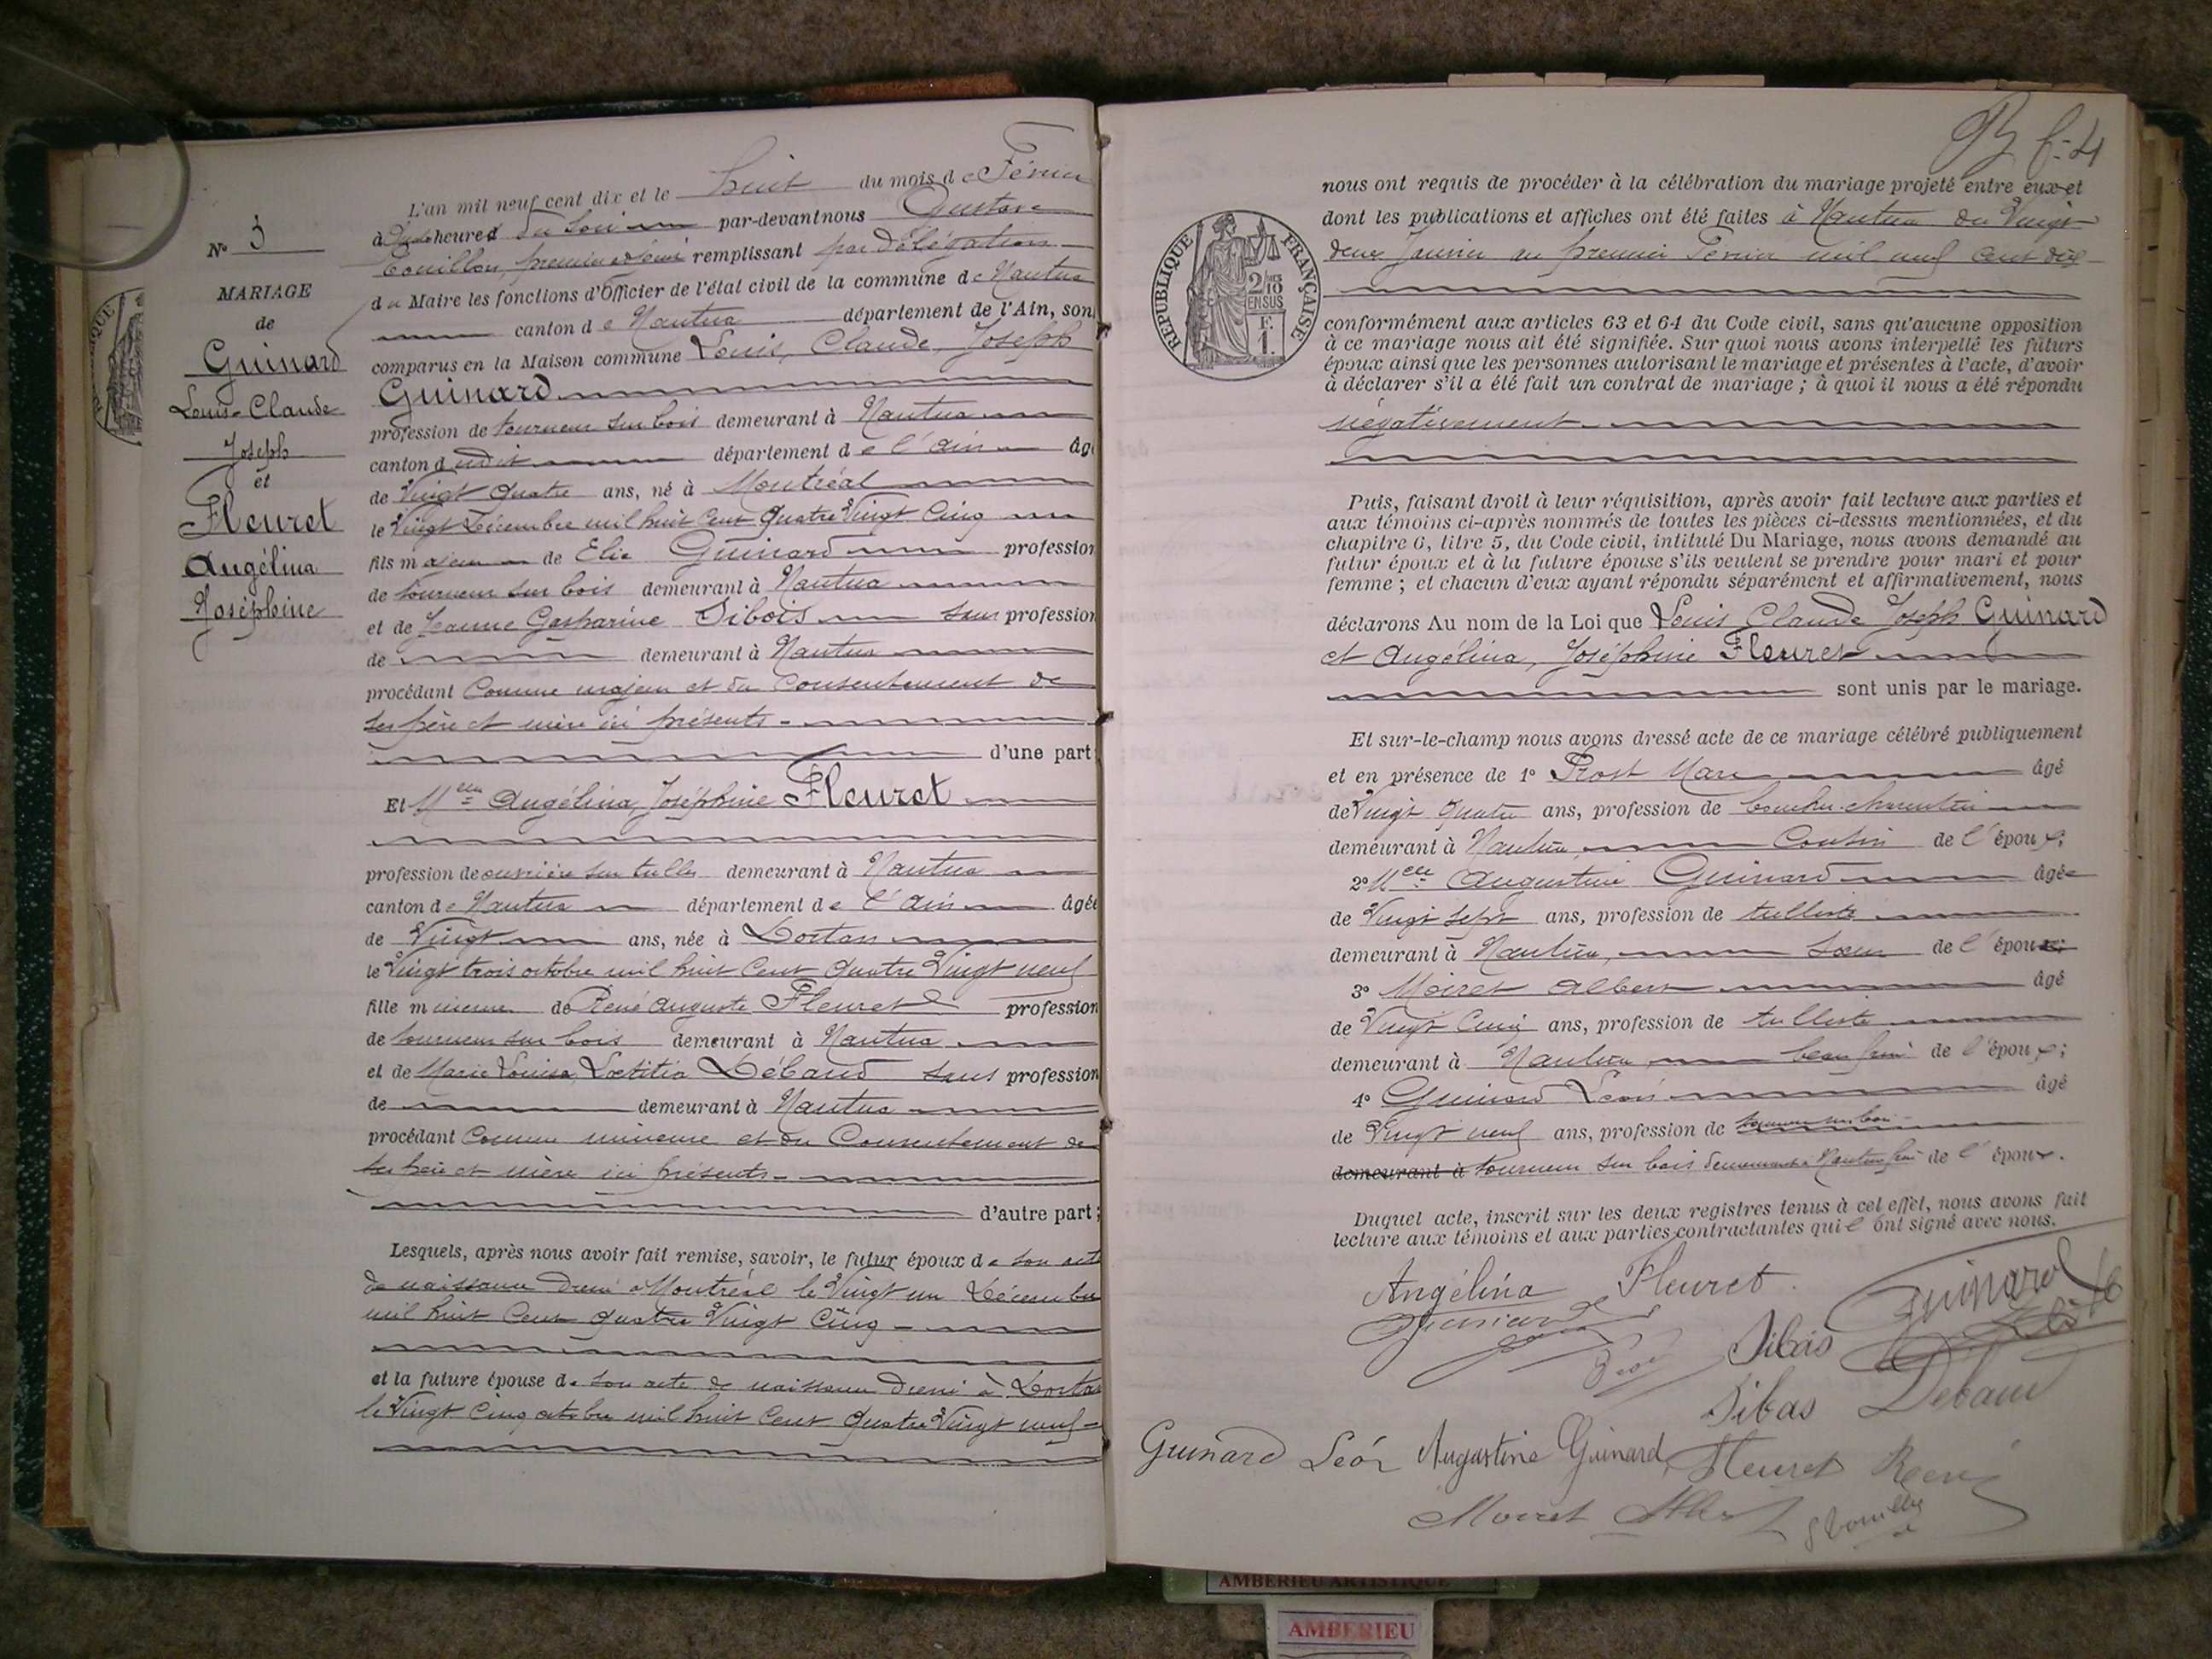 L'an mil neuf cent dix et le huit du mois de Février
heures du Soir par-devant nous Gustave
premier adjoint remplissant par Délégation
du Maire les fonctions d'Officier de l'état civil de la commune de Nantua
canton de Nantua département de l'Ain, son
comparus en la Maison commune Louis, Claude, Joseph
Guinard
profession de tourneur sur bois demeurant à Nantua
canton dudit département de l'Ain âg
de Vingt quatre ans, né à Montréal
le Vingt Décembre mil huit Cent Quatre Vingt Cinq
fils majeur de Elie Guinard profession
de tourneur sur bois demeurant à Nantua
et de Jeanne Gasparine Sibois sans profession
de demeurant à Nantua
procédant Comme majeur et du Consentement de
ses père et mère ici présents
d'une part;
Et Melle Angélina, Joséphine Fleuret
profession de ouvrière sur tulles demeurant à Nantua
canton de Nantua département de l'Ain âgée
de Vingt ans, née à Dortan
le Vingt trois octobre mil huit Cent Quatre Vingt neuf
fille mineure de René Auguste Fleuret profession
de tourneur sur bois demeurant à Nantua
et de Marie Louise Lætitia Débaud sans profession
de demeurant à Nantua
procédant Comme mineure et du Consentement de
ses père et mère ici présents
d'autre part;
Lesquels, après nous avoir fait remise, savoir, le futur époux de son acte
de naissance Dressé à Montréal le Vingt un Décembre
mil huit Cent Quatre Vingt Cinq
et la future épouse de son acte de naissance Dressé à Dortan
le Vingt Cinq octobre mil huit Cent Quatre Vingt neuf
No 3
MARIAGE
de
Guinard
Louis-Claude
Joseph
et
Fleuret
Angélina
Joséphine
f: 4
nous ont requis de procéder à la célébration du mariage projeté entre eux et
dont les publications et affiches ont été faites à Nantua du Vingt
deux Janvier au premier Février mil neuf Cent dix
REPUBLIQUE FRANÇAISE
2/10 EN SUS
F. 1.
conformément aux articles 63 et 64 du Code civil, sans qu'aucune opposition
à ce mariage nous ait été signifiée. Sur quoi nous avons interpellé les futurs
époux ainsi que les personnes autorisant le mariage et présentes à l'acte, d'avoir
à déclarer s'il a été fait un contrat de mariage; à quoi il nous a été répondu
négativement
Puis, faisant droit à leur réquisition, après avoir fait lecture aux parties et
aux témoins ci-après nommés de toutes les pièces ci-dessus mentionnées, et du
chapitre 6, titre 5, du Code civil, intitulé Du Mariage, nous avons demandé au
futur époux et à la future épouse s'ils veulent se prendre pour mari et pour
femme; et chacun d'eux ayant répondu séparément et affirmativement, nous
déclarons Au nom de la Loi que Louis Claude Joseph Guinard
et Angélina, Joséphine Fleuret
sont unis par le mariage.
Et sur-le-champ nous avons dressé acte de ce mariage célébré publiquement
et en présence de 1° Prost Marc âgé
de Vingt quatre ans, profession de boucher-charcutier
demeurant à Nantua, Cousin de l'époux;
2° Melle Augustine Guinard âgée
de Vingt sept ans, profession de tulliste
demeurant à Nantua, sœur de l'époux;
3° Moiret Albert âgé
de Vingt Cinq ans, profession de tulliste
demeurant à Nantua beau frère de l'époux;
4° Guinard Léon âgé
de Vingt neuf ans, profession de tourneur sur bois
demeurant à tourneur sur bois demeurant à Nantua frère de l'époux.
Duquel acte, inscrit sur les deux registres tenus à cet effet, nous avons fait
lecture aux témoins et aux parties contractantes qui l'ont signé avec nous.
Angélina Fleuret.
Guinard
Guinard
Sibas
Sibas Debaud
Guinard Léon Augustine Guinard Fleuret René
Moiret Alber
AMBERIEU ARTISTIQUE
AMBERIEU